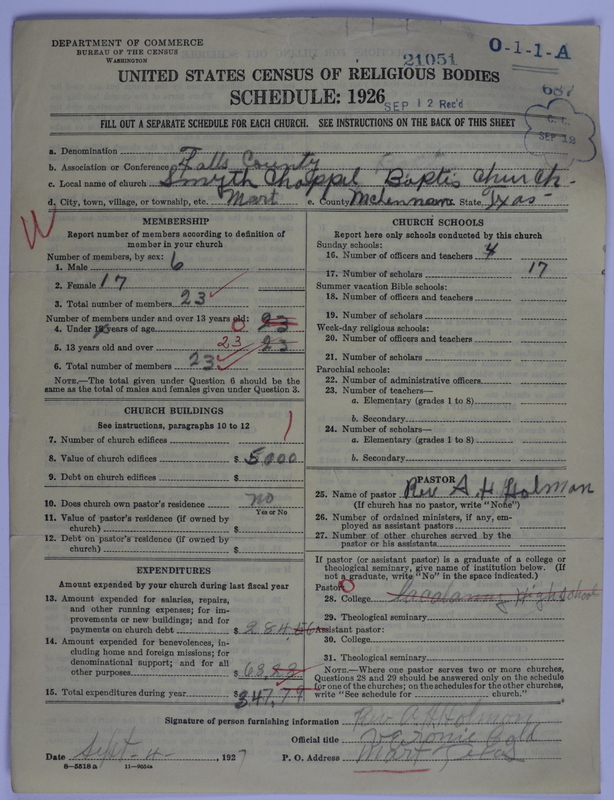 DEPARTMENT OF COMMERCE
BUREAU OF THE CENSUS
WASHINGTON
21051
O-1-1-A
UNITED STATES CENSUS OF RELIGIOUS BODIES
SCHEDULE: 1926
SEP 12 Rec'd
687
C. C.
SEP 12
FILL OUT A SEPARATE SCHEDULE FOR EACH CHURCH. SEE INSTRUCTIONS ON THE BACK OF THIS SHEET
a. Denomination
b. Association or Conference Falls County
c. Local name of church Smyth Chappel Baptis Church-
d. City, town, village, or township, etc. Mart e. County McLennann State, Texas-
MEMBERSHIP
Report number of members according to definition of
member in your church
Number of members, by sex:
1. Male 6
2. Female 17
3. Total number of members 23
Number of members under and over 13 years old:
4. Under 13 years of age 0 23
5. 13 years old and over 23 23
6. Total number of members 23
NOTE.—The total given under Question 6 should be the
same as the total of males and females given under Question 3.
CHURCH BUILDINGS
See instructions, paragraphs 10 to 12
7. Number of church edifices 1
8. Value of church edifices $ 5,000
9. Debt on church edifices $
10. Does church own pastor's residence no
Yes or No
11. Value of pastor's residence (if owned by
church) $
12. Debt on pastor's residence (if owned by
church) $
EXPENDITURES
Amount expended by your church during last fiscal year
13. Amount expended for salaries, repairs,
and other running expenses; for im-
provements or new buildings; and for
payments on church debt $ 284,
14. Amount expended for benevolences, in-
cluding home and foreign missions; for
denominational support; and for all
other purposes $ 63,
15. Total expenditures during year $ 347,
CHURCH SCHOOLS
Report here only schools conducted by this church
Sunday schools:
16. Number of officers and teachers 4
17. Number of scholars 17
Summer vacation Bible schools:
18. Number of officers and teachers
19. Number of scholars
Week-day religious schools:
20. Number of officers and teachers
21. Number of scholars
Parochial schools:
22. Number of administrative officers
23. Number of teachers—
a. Elementary (grades 1 to 8)
b. Secondary
24. Number of scholars—
a. Elementary (grades 1 to 8)
b. Secondary
PASTOR
25. Name of pastor Rev A. H Holman
(If church has no pastor, write "None")
26. Number of ordained ministers, if any, em-
ployed as assistant pastors
27. Number of other churches served by the
pastor or his assistants
If pastor (or assistant pastor) is a graduate of a college or
theological seminary, give name of institution below. (If
not a graduate, write "No" in the space indicated.)
Pastor: 0
28. College High School
29. Theological seminary
Assistant pastor:
30. College
31. Theological seminary
NOTE.—Where one pastor serves two or more churches,
Questions 28 and 29 should be answered only on the schedule
for one of the churches; on the schedules for the other churches,
write "See schedule for church."
Signature of person furnishing information Rev A H Holman
Official title
Date Sept-4-, 1927 P. O. Address Mart Texas
8-5518a 11-9554a